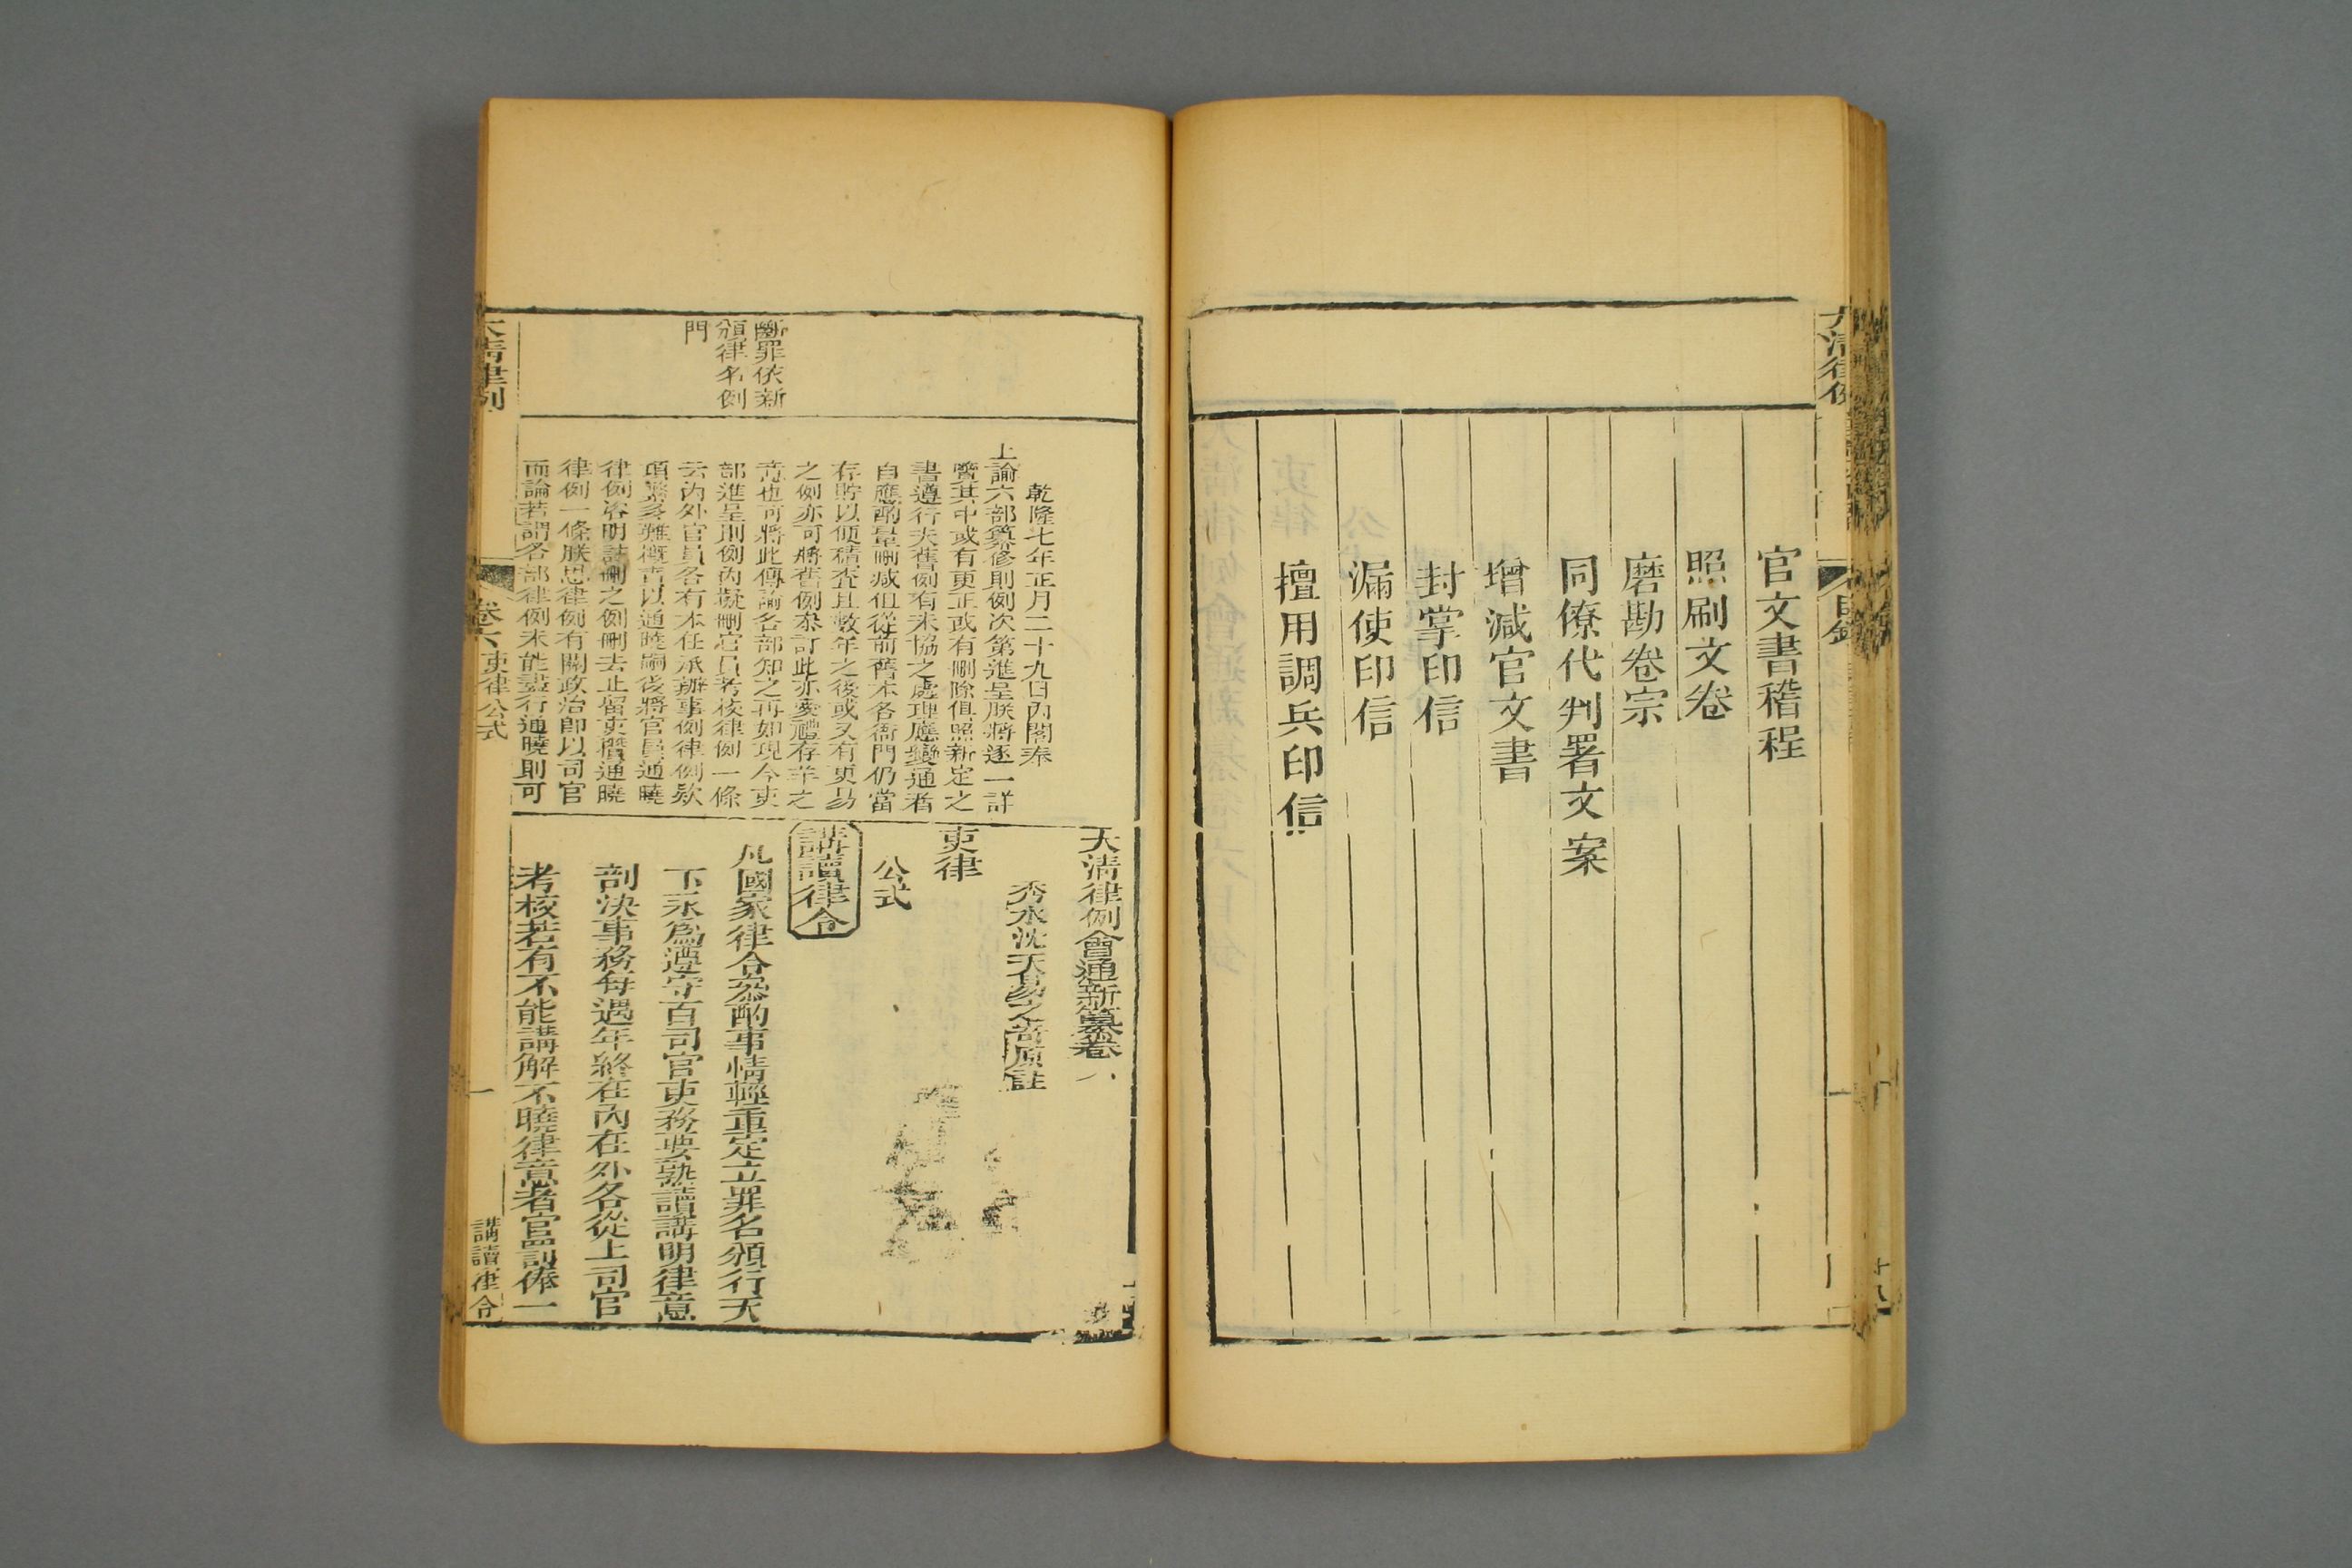 大清律例
目錄
官文書稽程
照刷文卷
磨勘卷宗
同僚代判署文案
增減官文書
封掌印信
漏使印信
擅用調兵印信
斷罪依新
頒律名例
門
乾隆七年正月二十九日內閣奉
上諭六部纂修則例次第進呈朕將逐一詳
覽其中或有更正或有刪除俱照新定之
書遵行夫舊例有未協之處理應變通者
自應酌量刪減但從前舊本各衙門仍當
存貯以便稽查且數年之後或又有更易
之例亦可將舊例叅訂此亦愛禮存羊之
意也可將此傳諭各部知之再如現今吏
部進呈則例內擬刪官員考核律例一條
云內外官員各有本任承辦事例律例欵
項繁多難概責以通曉嗣後將官員通曉
律例 明請刪之例刪去止留吏攢通曉
律例一條朕思律例有關政治卽以司官
而論若謂各部律例未能盡行通曉則可
大清律例會通新纂卷
秀水沈天易之 原註
吏律
公式
講讀律令
凡國家律令叅酌事情輕重定立罪名頒行天
下永為遵守百司官吏務要熟讀講明律意
剖決事務每遇年終在內在外各從上司官
考核若有不能講解不曉律意者官罰俸一
大清律例
卷六
吏律公式
一
講讀律令